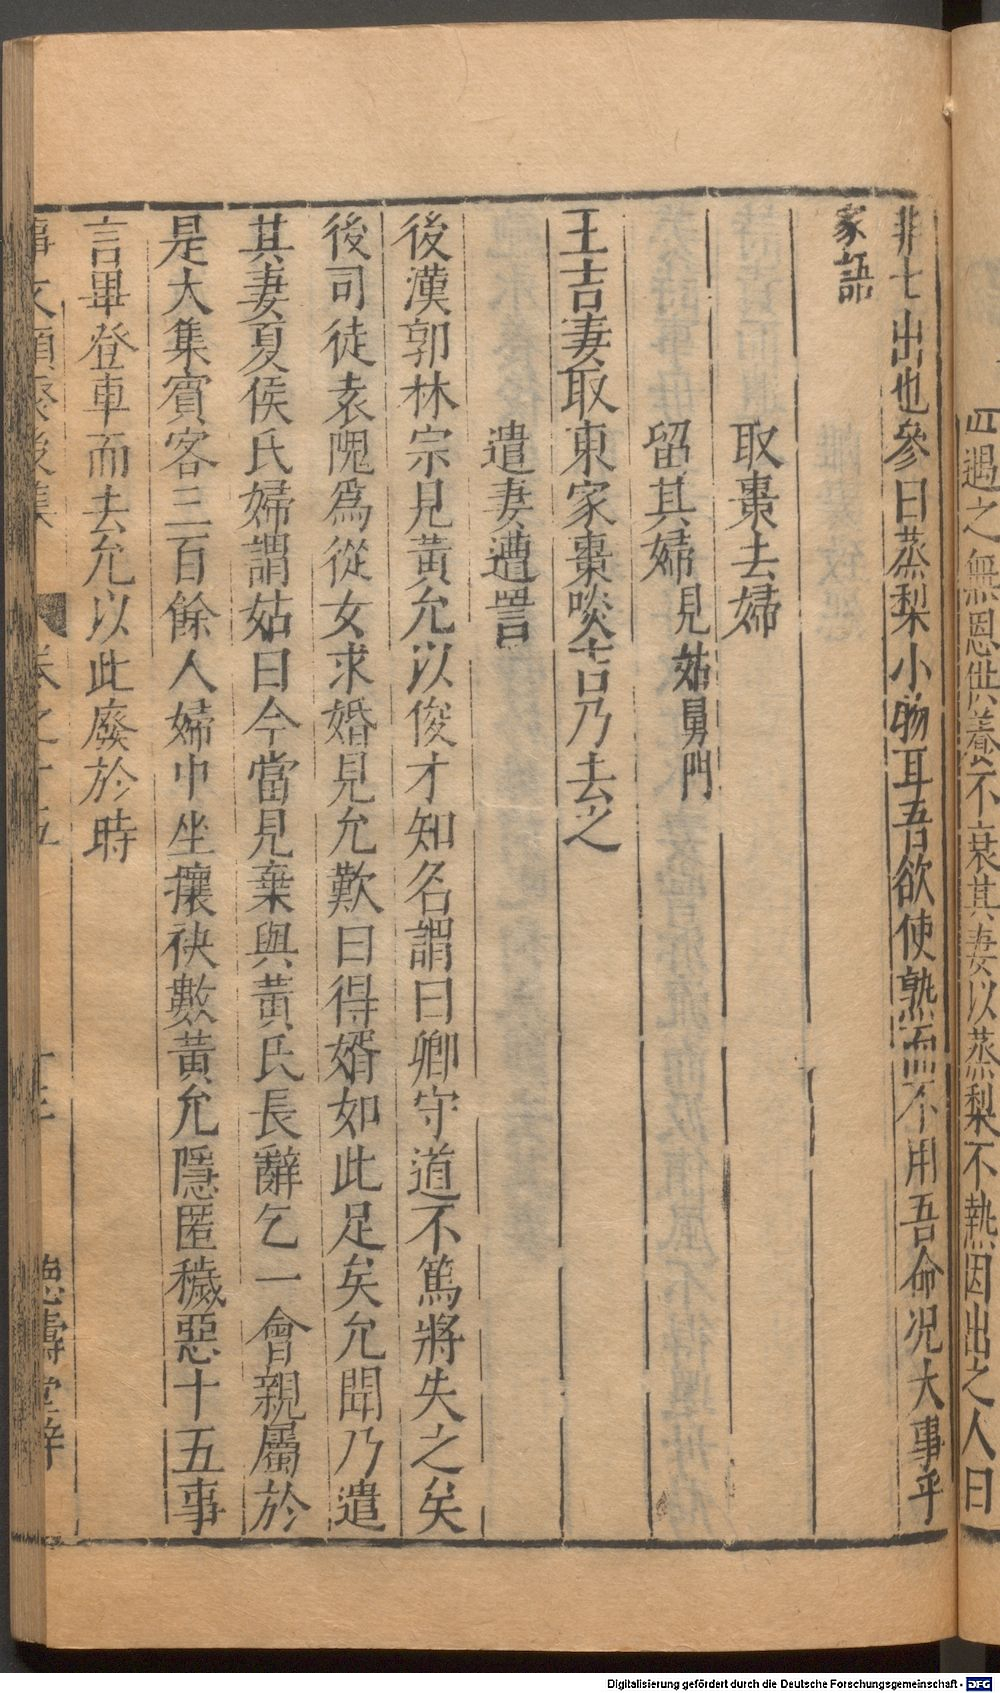 四遇之無恩供養不衰其妻以蒸梨不熟因出之人曰
非七出也參曰蒸梨小物耳吾欲使熟而不用吾命况大事乎
家語
取棗去婦
留其婦見姑舅門
王吉妻取東家棗啖吉乃去之
遣妻遭詈
後漢郭林宗見黃允以俊才知名謂曰卿守道不篤將失之矣
後司徒袁隗爲從女求婚見允歎曰得婿如此足矣允聞乃遣
其妻夏侯氏婦謂姑曰今當見棄與黃氏長辭乞一會親屬於
是大集賓客三百餘人婦中坐攘袂數黃允隱匿穢惡十五事
言畢登車而去允以此廢於時
事文類聚後集 卷之十五 德壽堂梓
Digitalisierung gefördert durch die Deutsche Forschungsgemeinschaft - DFG